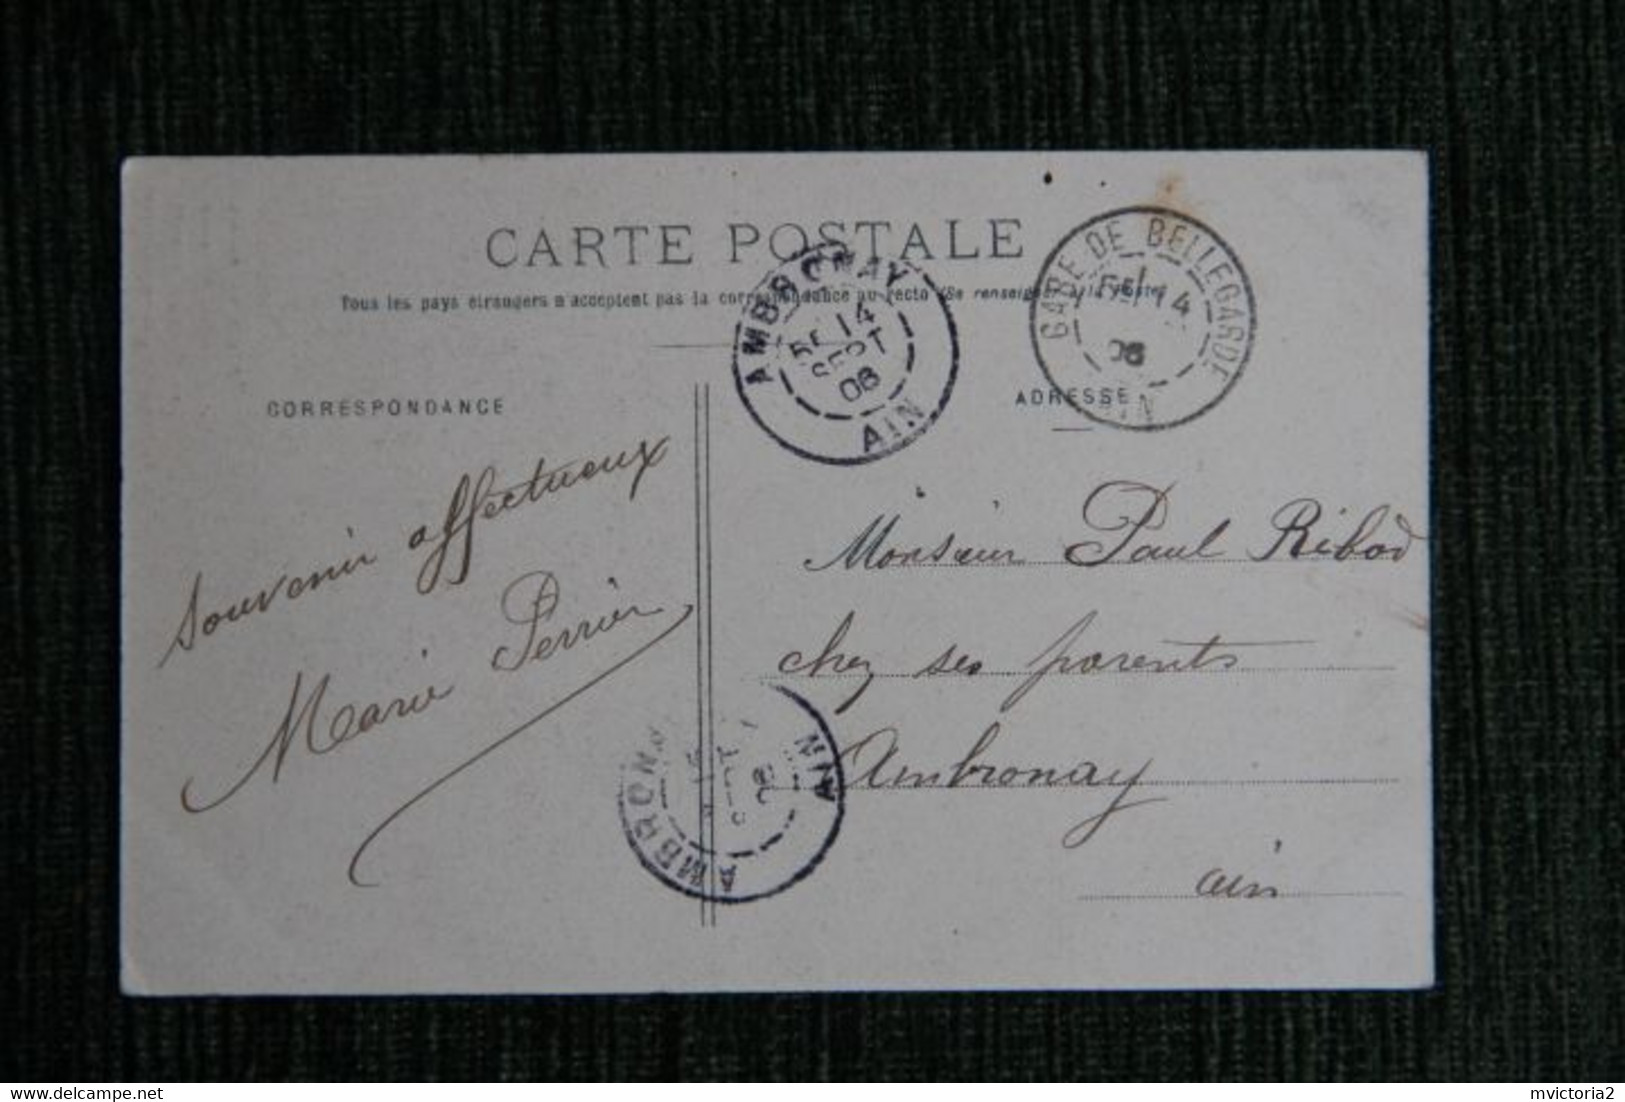 CARTE POSTALE
Tous les pays étrangers n'acceptent pas la correspondance au recto (Se renseigner à la poste)
CORRESPONDANCE
ADRESSE
AMBRONAY
14
SEPT
06
AIN
GARE DE BELLEGARDE
14
06
AIN
Souvenir affectueux
Marie Perrier
Monsieur Paul Ribod
chez ses parents
Ambronay
ain
AMBRONAY
AIN
mvictoria2